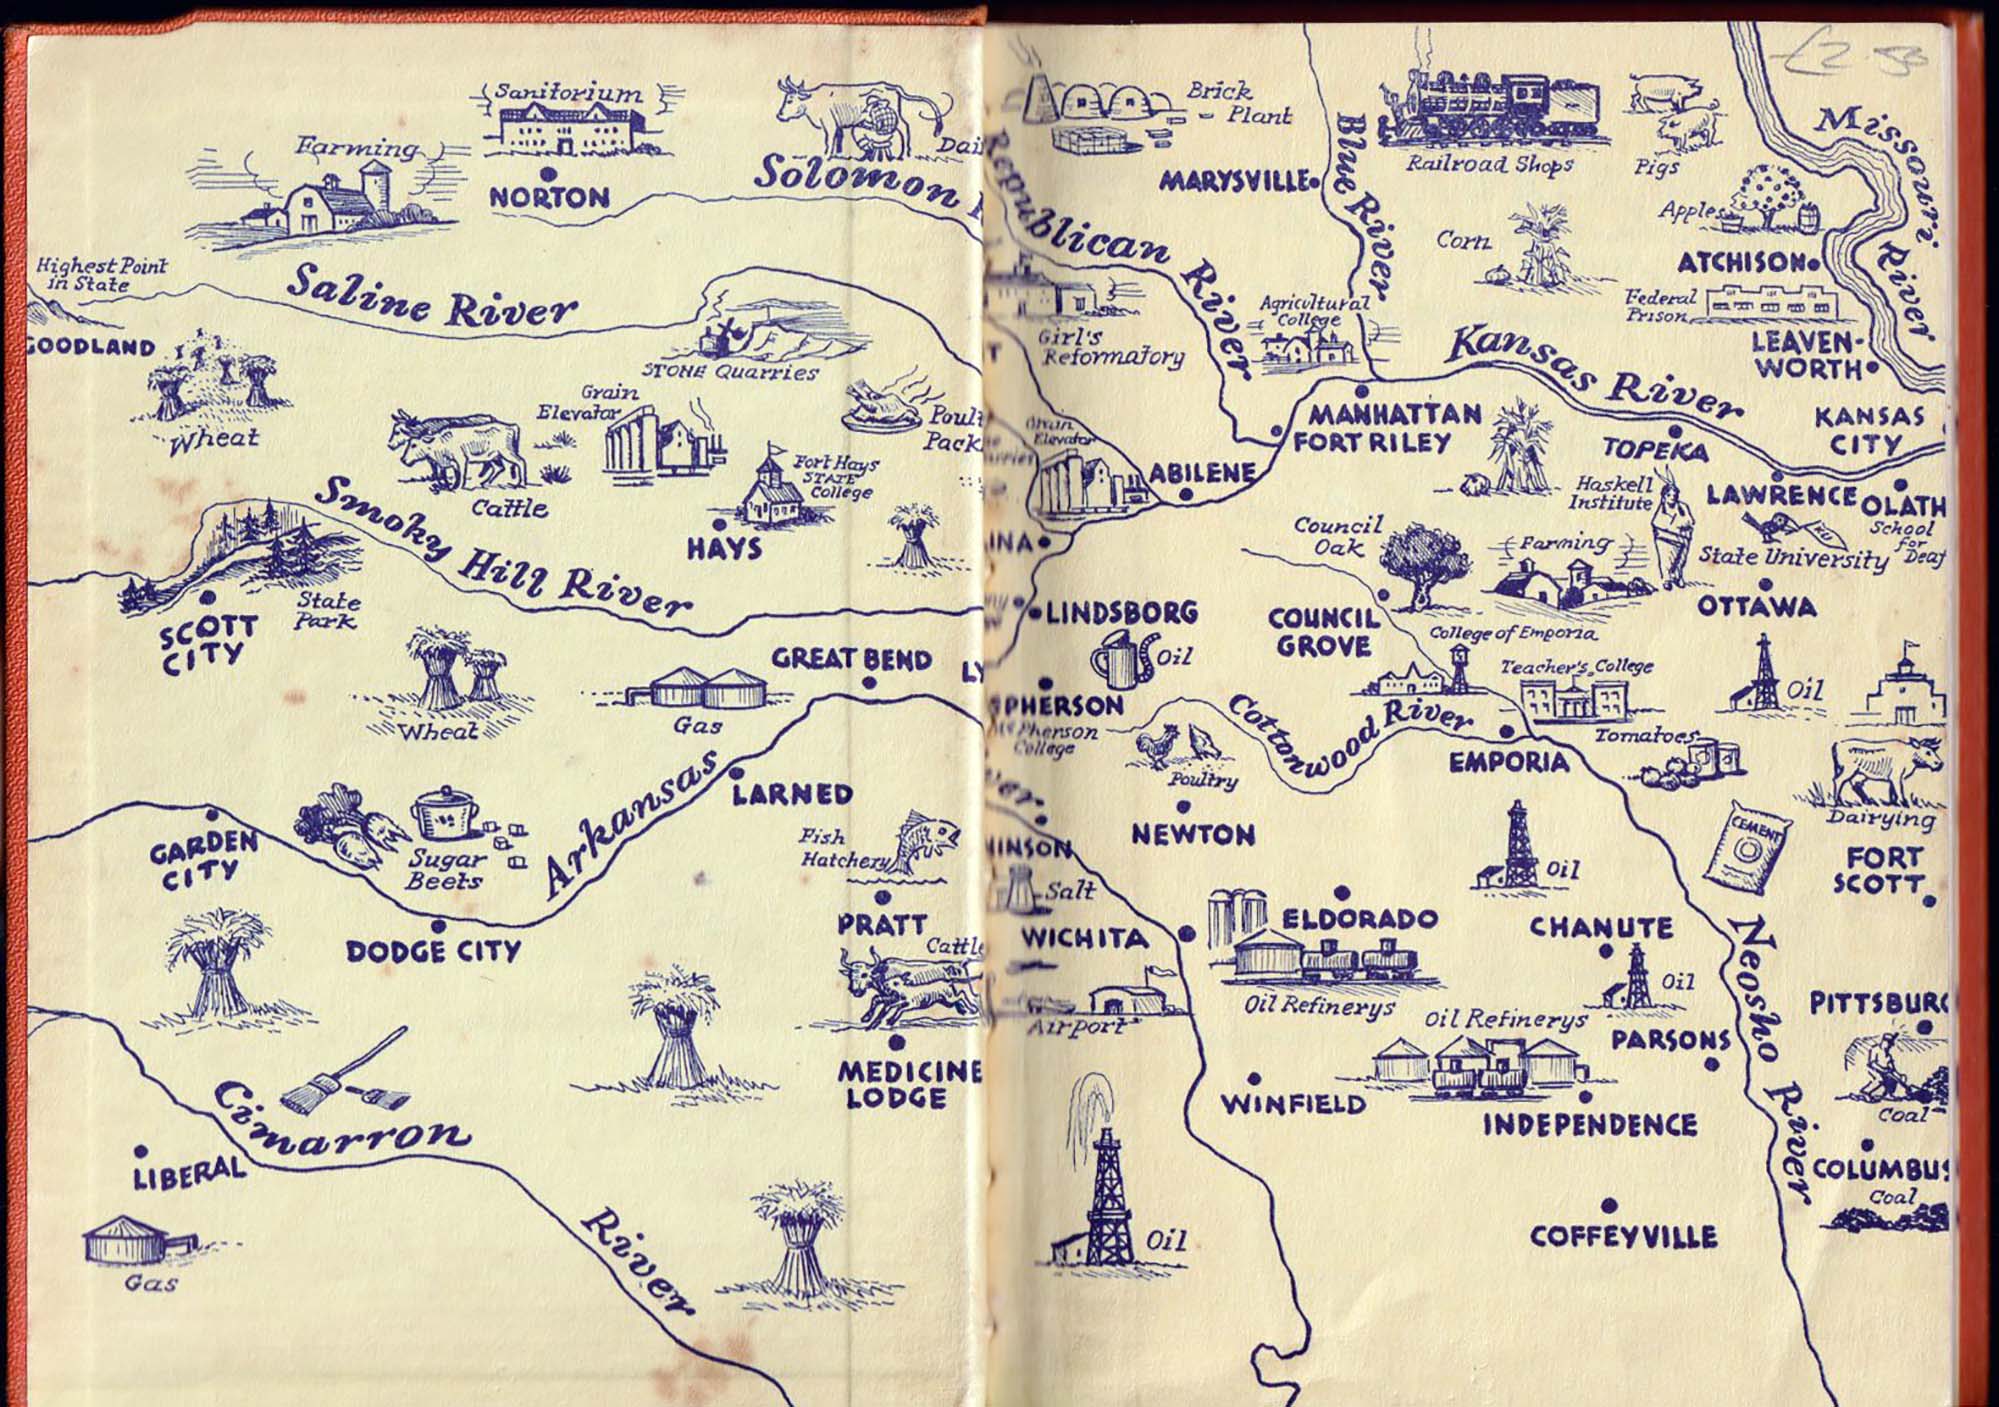 Sanitorium
Farming
NORTON
Solomon
Highest Point
in State
Saline River
GOODLAND
Wheat
STONE Quarries
Grain
Elevator
Cattle
Fort Hays
STATE
College
HAYS
Smoky Hill River
State
Park
SCOTT
CITY
Wheat
Gas
GREAT BEND
Arkansas
LARNED
GARDEN
CITY
Sugar
Beets
Fish
Hatchery
DODGE CITY
PRATT
Cattle
MEDICINE
LODGE
Cimarron
River
LIBERAL
Gas
£2.50
Brick
Plant
MARYSVILLE
Blue River
Railroad Shops
Pigs
Missouri
River
Republican River
Apples
Corn
ATCHISON
Federal
Prison
LEAVEN-
WORTH
Agricultural
College
Girl's
Reformatory
Kansas River
KANSAS
CITY
MANHATTAN
FORT RILEY
TOPEKA
Grain
Elevator
ABILENE
Haskell
Institute
LAWRENCE
OLATH
School
for
Deaf
KU
State University
Council
Oak
Farming
INA
LINDSBORG
COUNCIL
GROVE
OTTAWA
College of Emporia
Oil
Teacher's College
Oil
PHERSON
McPherson
College
Cottonwood River
Poultry
EMPORIA
Tomatoes
NEWTON
CEMENT
Dairying
HINSON
Salt
Oil
FORT
SCOTT
WICHITA
ELDORADO
CHANUTE
Neosho River
Oil Refinerys
Oil
Airport
Oil Refinerys
PARSONS
PITTSBURG
WINFIELD
INDEPENDENCE
Coal
COLUMBUS
Coal
Oil
COFFEYVILLE